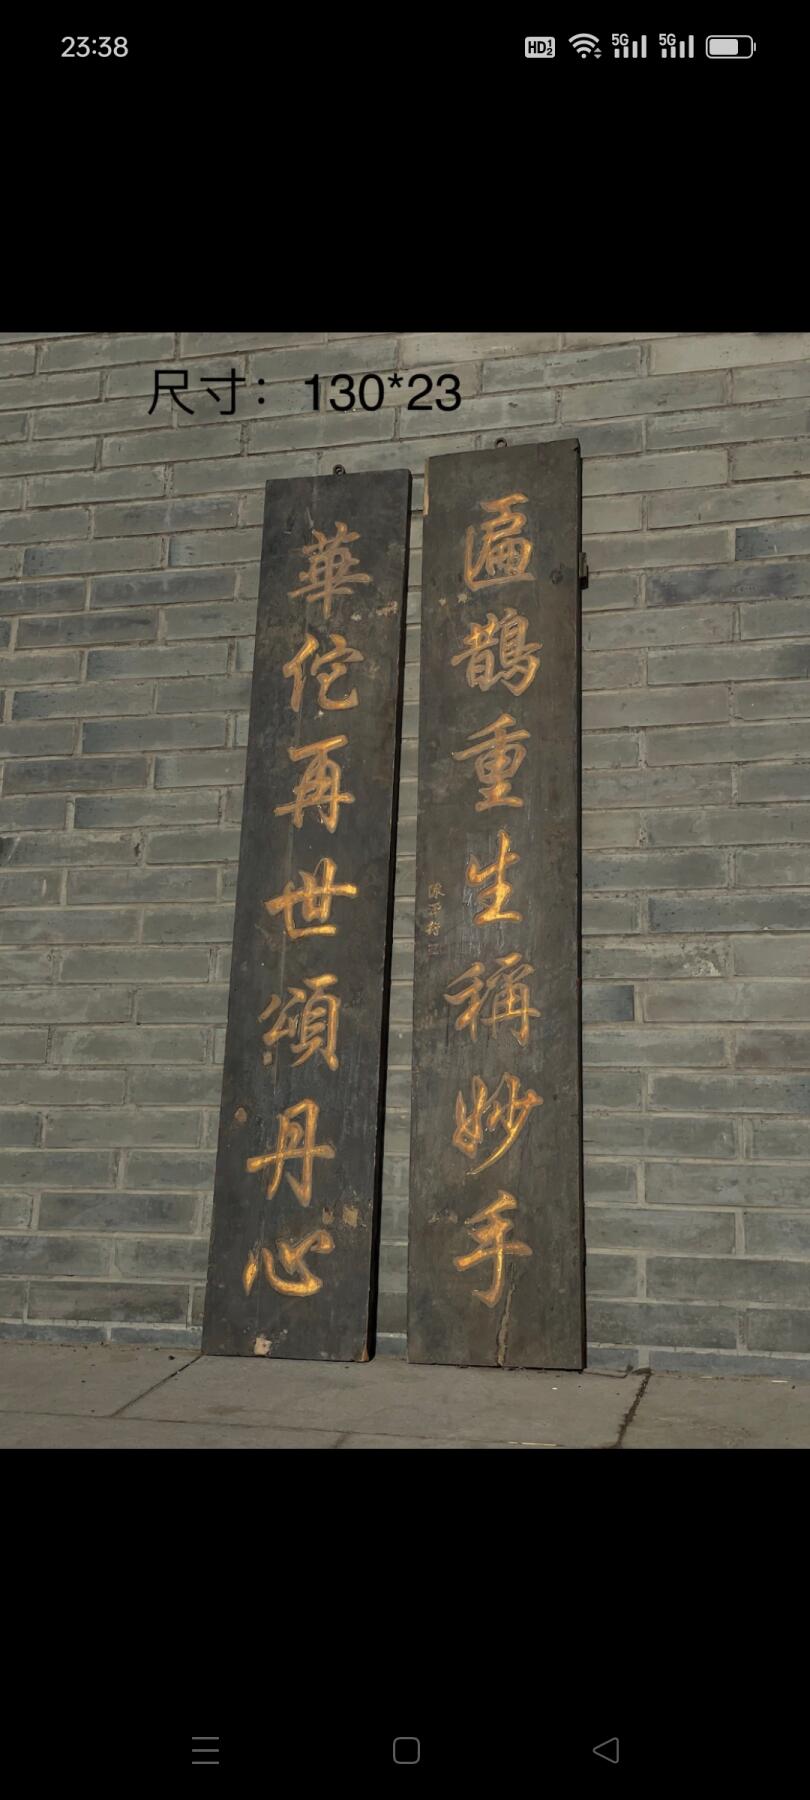 23:38
HD 1 2 5G 5G
尺寸：130*23
匾鵲重生稱妙手
華佗再世頌丹心